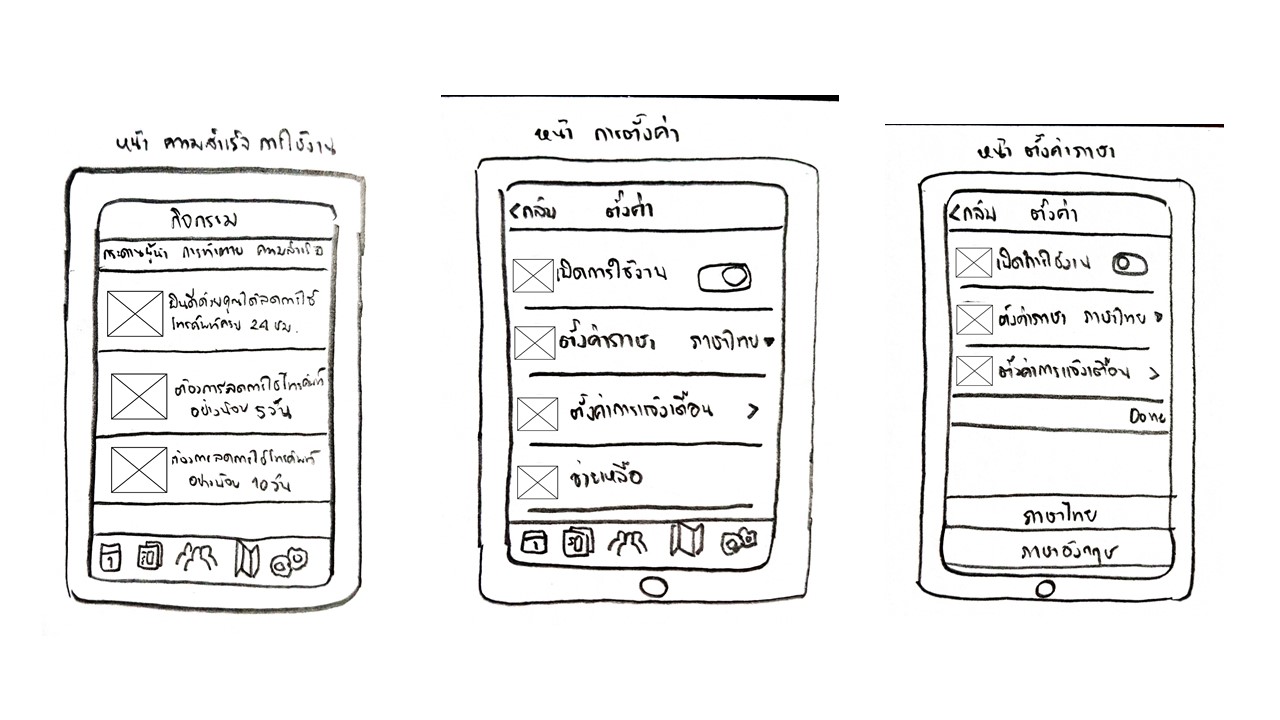 หน้า ความสำเร็จ การใช้งาน
กิจกรรม
กระดานผู้นำ การท้าทาย ความสำเร็จ
ยินดีด้วยคุณได้ลดการใช้
โทรศัพท์ครบ 24 ชม.
ต้องการลดการใช้โทรศัพท์
อย่างน้อย 5 วัน
ต้องการลดการใช้โทรศัพท์
อย่างน้อย 10 วัน
1
หน้า การตั้งค่า
<กลับ ตั้งค่า
เปิดการใช้งาน
ตั้งค่าภาษา ภาษาไทย
ตั้งค่าการแจ้งเตือน >
ช่วยเหลือ
1
หน้า ตั้งค่าภาษา
<กลับ ตั้งค่า
เปิดการใช้งาน
ตั้งค่าภาษา ภาษาไทย
ตั้งค่าการแจ้งเตือน >
Done
ภาษาไทย
ภาษาอังกฤษ